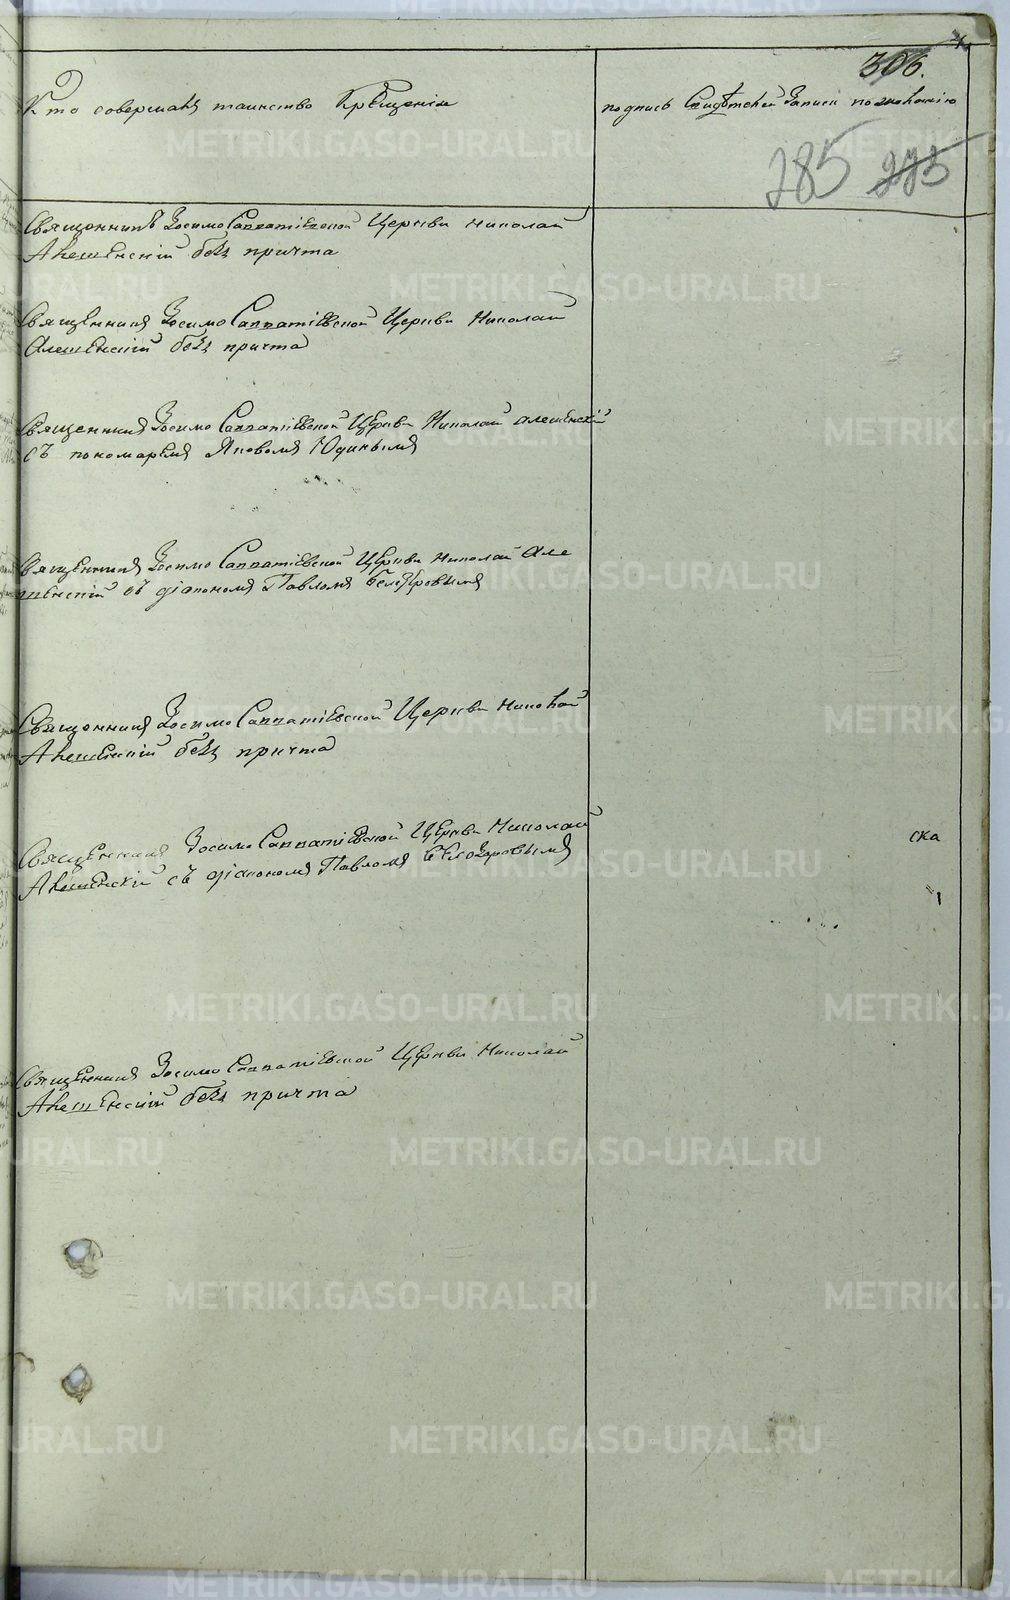 306.
Кто совершалъ таинство Крещенія
подпись Свидѣтелей Записи по желанію
285 275
Священникъ Зосимо Савватіевской Церкви Николай
Алешенскій безъ причта
Священникъ Зосимо Савватіевской Церкви Николай
Алешенскій безъ причта
Священникъ Зосимо Савватіевской Церкви Николай Алешенскій
съ пономаремъ Яковомъ Юдинымъ
Священникъ Зосимо Савватіевской Церкви Николай Але
шенскій съ діакономъ Павломъ Белозеровымъ
Священникъ Зосимо Савватіевской Церкви Николай
Алешенскій безъ причта
Священникъ Зосимо Савватіевской Церкви Николай
Алешенскій съ діакономъ Павломъ Белозеровымъ
ска
Священникъ Зосимо Савватіевской Церкви Николай
Алешенскій безъ причта
METRIKI.GASO-URAL.RU